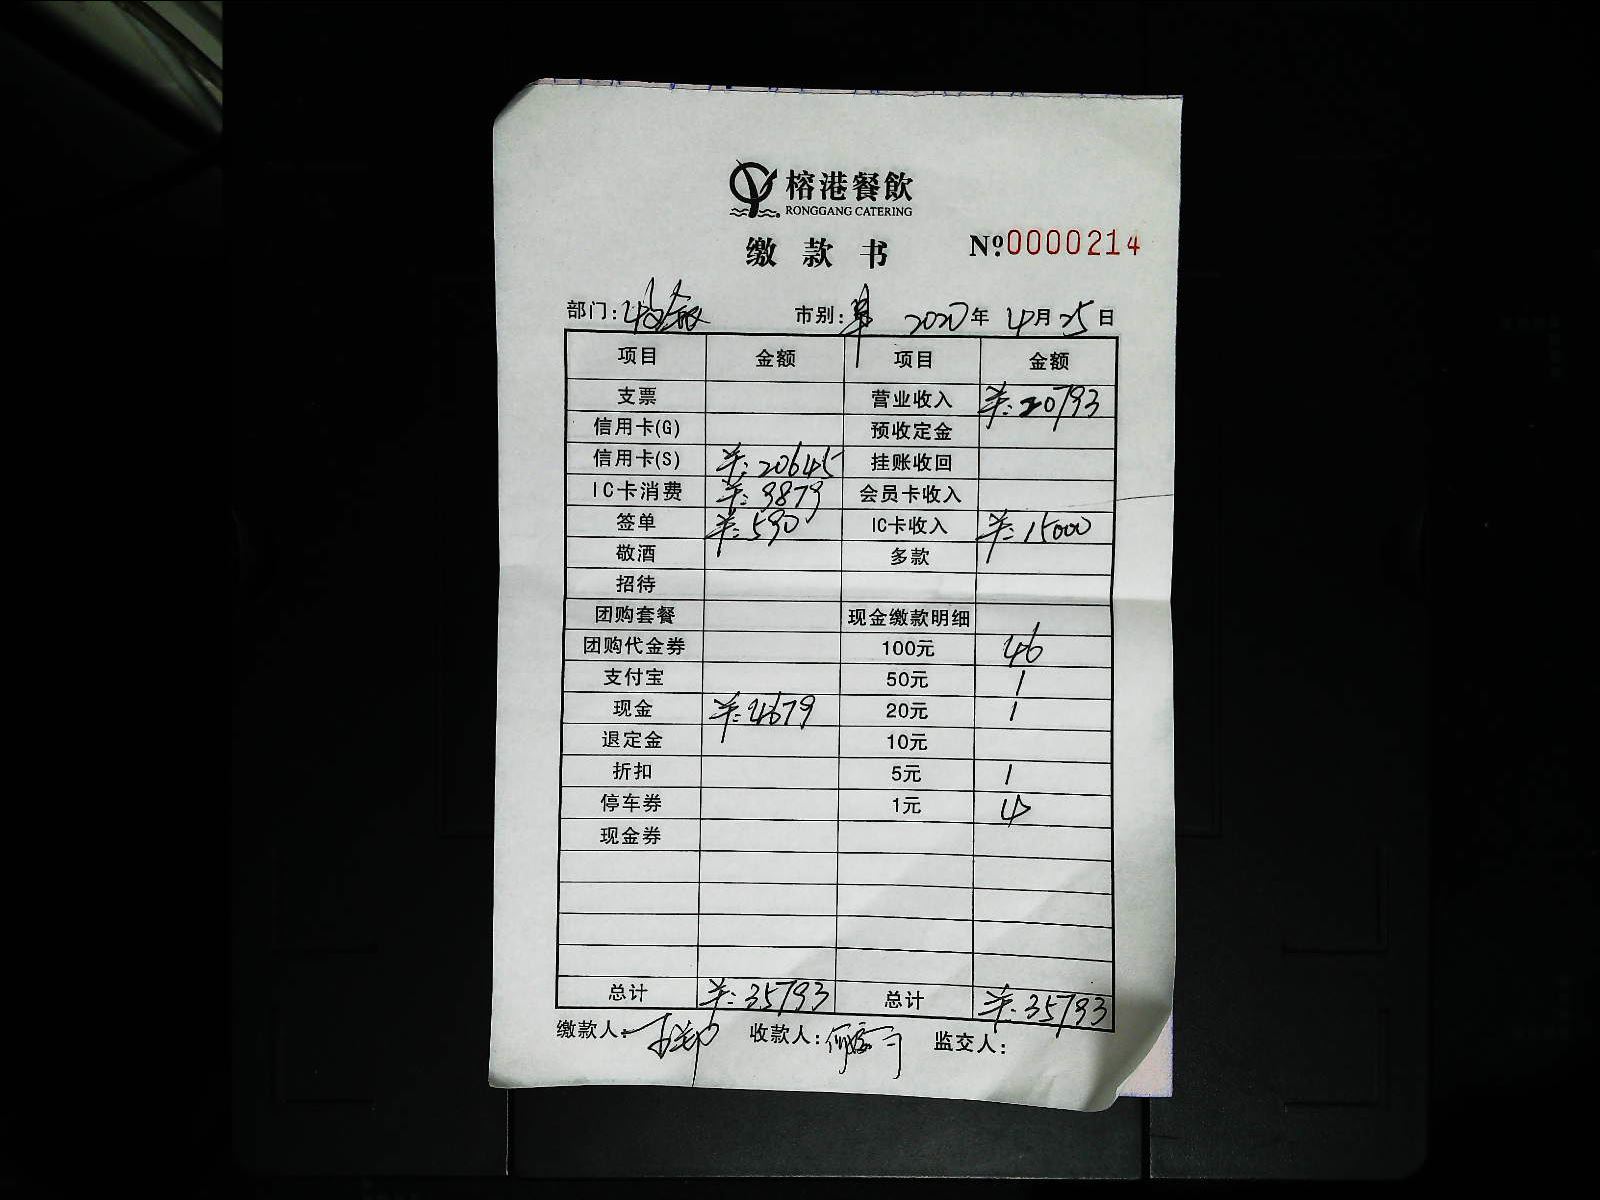 榕港餐飲
RONGGANG CATERING
缴款书 №0000214
部门: 市别: 2020年 4月25日
项目 金额 项目 金额
支票 营业收入 羊:20793
信用卡(G) 预收定金
信用卡(S) 羊:20645 挂账收回
IC卡消费 羊:9879 会员卡收入
签单 羊:590 IC卡收入 羊:15000
敬酒 多款
招待
团购套餐 现金缴款明细
团购代金券 100元 46
支付宝 50元 1
现金 羊:4679 20元 1
退定金 10元
折扣 5元 1
停车券 1元 4
现金券
总计 羊:35793 总计 羊:35793
缴款人: 收款人: 监交人: